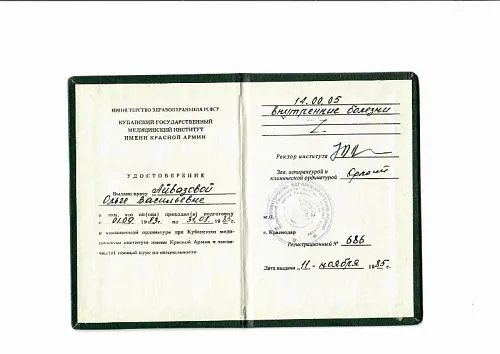 МИНИСТЕРСТВО ЗДРАВООХРАНЕНИЯ РСФСР
КУБАНСКИЙ ГОСУДАРСТВЕННЫЙ
МЕДИЦИНСКИЙ ИНСТИТУТ
ИМЕНИ КРАСНОЙ АРМИИ
УДОСТОВЕРЕНИЕ
Выдано врачу Айвазовой
Ольге Васильевне
в том, что он(она) проходил(а) подготовку
с 01.09 1983г. по 31.08 1985г.
в клинической ординатуре при Кубанском меди-
цинском институте имени Красной Армии и закон-
чил(а) полный курс по специальности
14.00.05
внутренние болезни
Ректор института
Зав. аспирантурой и
клинической ординатурой
М.П.
г. Краснодар
Регистрационный № 686
Дата выдачи „11" ноября 1985г.